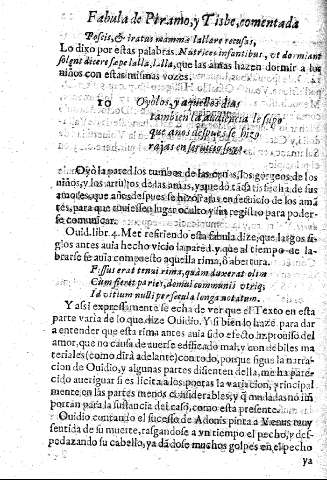 Fabula de Piramo, y Tisbe, comentada
Poscis, & iratus mammæ lallare recusas,
Lo dixo por estas palabras. Nutrices infantibus, vt dormiant
solent dicere sæpe lalla, lalla, que las amas hazen dormir a los
niños con estas mismas vozes.
10 Oyolos, y aquellos dias
tambien la audiencia le supo
que años despues se hizo
rajas en seruicio suyo.
Oyò la pared los tumbos de las cunas, los gorgeos de los
niños, y los de las amas, y quedò fecha de sus
amores, que años despues se hizo rajas en seruicio de los amã
tes, para que tuuiessen lugar oculto y sin registro para poder-
se comunicar.
Ouid. libr. 4. Met. refiriendo esta fabula dize, que largos si-
glos antes auia hecho vicio la pared, y que al tiempo de la-
brarse se auia compuesto aquella rima, ò abertura.
Fissus erat tenui rima, quàm duxerat olim
Cum fieret paries, domui communis vtriq;
Id vitium nulli per secula longa notatum.
Y assi expressamente se echa de ver que el Texto en esta
parte varia de lo que dize Ouidio. Y si bien lo haze para dar
a entender que esta rima antes auia sido efeto improuiso del
amor, que no causa de auerse edificado mal, y con debiles ma
teriales (como dirà adelante) con todo, porque sigue la narra-
cion de Ouidio, y algunas partes disienten della, me ha pare-
cido aueriguar si es licita a los poetas la variacion, principal
mente en las partes menos considerables, y q̃ mudadas no im
portan para la sustancia del caso, como esta presente.
Ouidio contando el sucesso de Adonis pinta a Venus muy
sentida de su muerte, rasgandose a vn tiempo el pecho, y des-
pedazando su cabello, ya dãdose muchos golpes en el pecho
ya